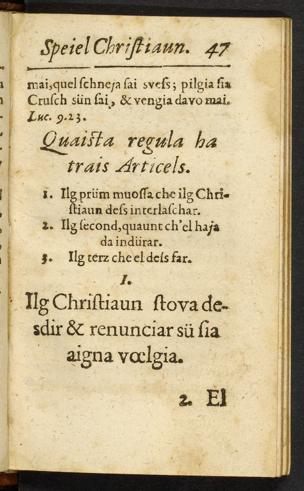 Speiel Chriſtiaun. 47
mai, quel ſchneja ſai sveſs; pilgia ſia
Cruſch sün ſai, & vengia davo mai.
Luc. 9.23.
Quaiſta regula ha
trais Articels.
1. Ilg prüm muoſſa che ilg Chri-
ſtiaun deſs interlaſchar.
2. Ilg ſecond, quaunt ch'el haja
da indürar.
3. Ilg terz che el deſs far.
I.
Ilg Chriſtiaun ſtova de-
sdir & renunciar sü ſia
aigna vœlgia.
2. El